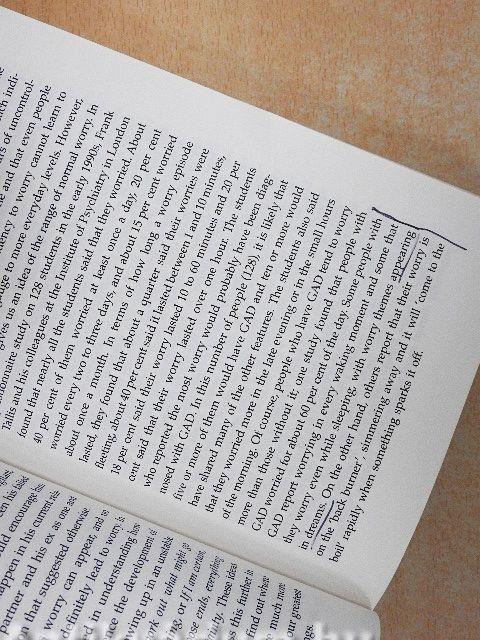 ch indi-
ts of uncontrol-
e and that even people
dency to worry cannot learn to
to more everyday levels. However,
gives us an idea of the range of normal worry. In
questionnaire study on 128 students in the early 1990s, Frank
Tallis and his colleagues at the Institute of Psychiatry in London
found that nearly all the students said that they worried. About
40 per cent of them worried at least once a day, 20 per cent
worried every two to three days, and about 15 per cent worried
about once a month. In terms of how long a worry episode
lasted, they found that about a quarter said their worries were
fleeting, about 40 per cent said it lasted between 1 and 10 minutes,
18 per cent said their worry lasted 10 to 60 minutes and 20 per
cent said that their worry lasted over one hour. The students
who reported the most worry would probably have been diag-
nosed with GAD. In this number of people (128), it is likely that
five or more of them would have GAD and ten or more would
have shared many of the other features. The students also said
that they worried more in the late evening or in the small hours
of the morning. Of course, people who have GAD tend to worry
more than those without it, one study found that people with
GAD worried for about 60 per cent of the day. Some people with
GAD report worrying in every waking moment and some that
they worry even while sleeping, with worry themes appearing
in dreams. On the other hand, others report that their worry is
on the 'back burner' simmering away and it will 'come to the
boil' rapidly when something sparks it off.
ould encourage his
appen in his current rela
partner and his ex as one are
on that suggested otherwise
worry can appear, and so
definitely lead to worry, is
d understanding how
nce the development of
ring up in an unstable
work out what might go
ng or if I am certain,
ose ends, everything
ty. These ideas
ss this further in
find out when
much more
ur greatest